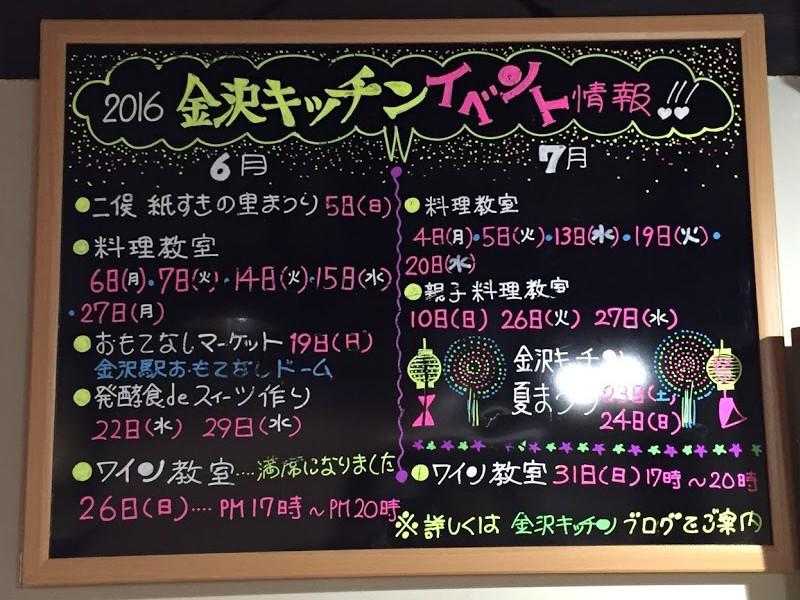 2016 金沢キッチンイベント情報!!!
6月
●二俣 紙すきの里まつり 5日(日)
●料理教室
6日(月)・7日(火)・14日(火)・15日(水)
・27日(月)
●おもてなしマーケット 19日(日)
金沢駅おもてなしドーム
●発酵食deスィーツ作り
22日(水) 29日(水)
●ワイン教室....満席になりました
26日(日)....PM17時～PM20時
7月
●料理教室
4日(月)・5日(火)・13日(水)・19日(火)・
20日(水)
●親子料理教室
10日(日) 26日(火) 27日(水)
金沢キッチン
夏まつり 23日(土)
24日(日)
●ワイン教室 31日(日)17時～20時
※詳しくは 金沢キッチン ブログでご案内